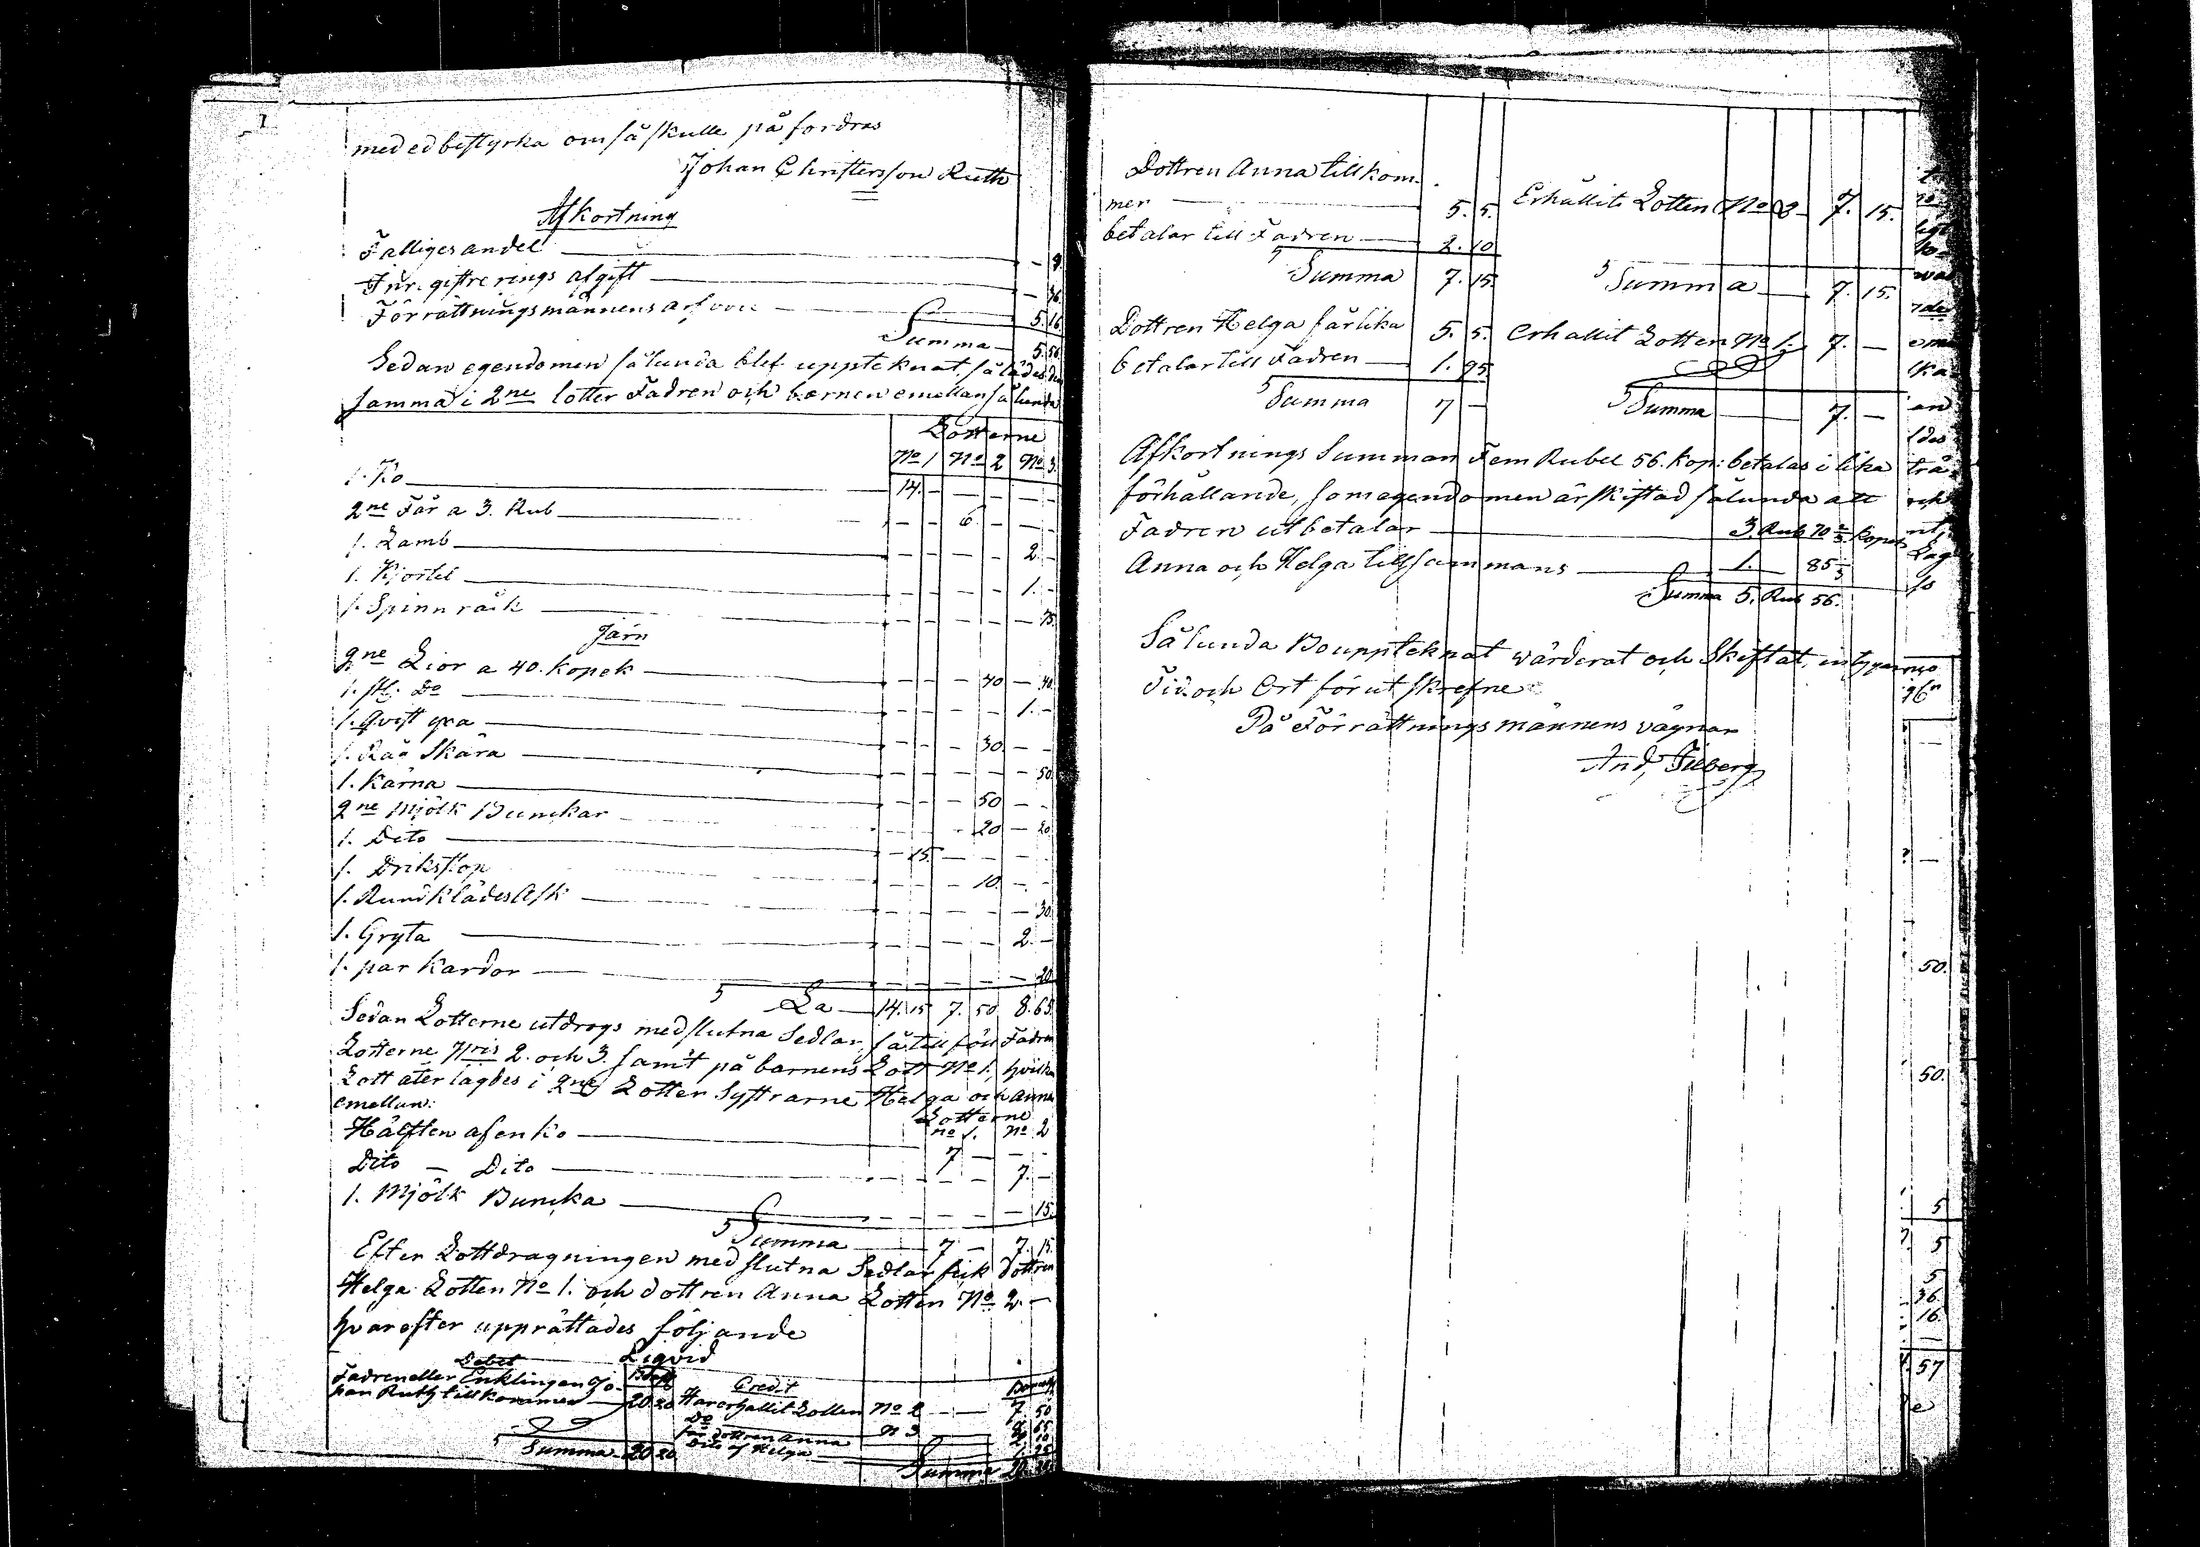 med ed bestyrka om så skulle på fordras
Johan Christersson Ruth
Afkortning
Fattiges andel — — 9
In registrerings afgift — —
Förrättningsmännens arfvou — 5. 16
Summa — 5. 56
Sedan egendomen sålunda blef uppteknat, så lades den
samma i 2ne lotter Fadren och barnen emellan sålunda
Lotterne
No 1 No 2 No 3.
1. Ko — 14. —
2ne Får a 3. Rub — 6. —
1. Lamb — 2. —
1. Kjortel — 1. —
1. Spinn råck — 75.
Järn
2ne Lior a 40. Kopek — 40 — 40.
1. st. Do — 1. —
1. Qvist yxa — 30. — —
1. Råg Skära — 50.
1. Kärna — 50 — —
2ne Mjölk Bunckar — 20 — 20.
1. Dito — 15. — —
1. Drikstop — 10. — —
1. Rund klädes Ask — 30.
1. Gryta — 2. —
1. par Kardor — 20.
La — 14. 15 7. 50 8. 65.
Sedan Lotterne utdrogs med slutna Sedlar, så till föll Fadren
Lotterne Nris 2. och 3. samt på barnens Lott No 1. hvilken
Lott åter lagdes i 2ne Lotter Systrarne Helga och Anna
emellan:
Lotterne
no 1. no 2
Hälften af en ko — 7 — — —
Dito — Dito — 7. —
1. Mjölk Buncka — 15.
Summa — 7 — 7. 15.
Efter Lottdragningen med slutna Sedlar fick Dottren
Helga Lotten No 1. och dottren Anna Lotten No 2. —
hvarefter upprättades följande
Liqvid
Debet
Credit
Fadren eller Enklingen Jo-
han Ruth tillkommer — 20 20
Har erhållit Lotten No 2 — 7 50
Do N 3 — 8 65
från Dottren Anna — 2 10
Dito af Helga — 1. 95
Summa 20 20
Summa 20 20
Dottren Anna tillkom-
mer — 5. 5. Erhållit Lotten No 2 — 7. 15.
betalar till Fadren — 2. 10
Summa 7. 15. Summa — 7. 15.
Dottren Helga får lika 5. 5. Erhallit Lotten No 1. 7. —
betalar till Fadren — 1. 95
Summa 7 — Summa — 7. —
Afkortnings Summan Fem Rubel 56. Kop: betalas i lika
förhållande, som egendomen är skiftad sålunda att
Fadren utbetalar — 3. Rub 70 2/3 Kopek
Anna och Helga tillsammans — 1. 85 1/3
Summa 5. Rub 56.
Sålunda Bouppteknat värderat och Skiftat, intygar
Tid och Ort för ut skrefne
På Förrättnings männens vägnar
And, Filberg
50.
50.
5
5
5
36.
16.
57